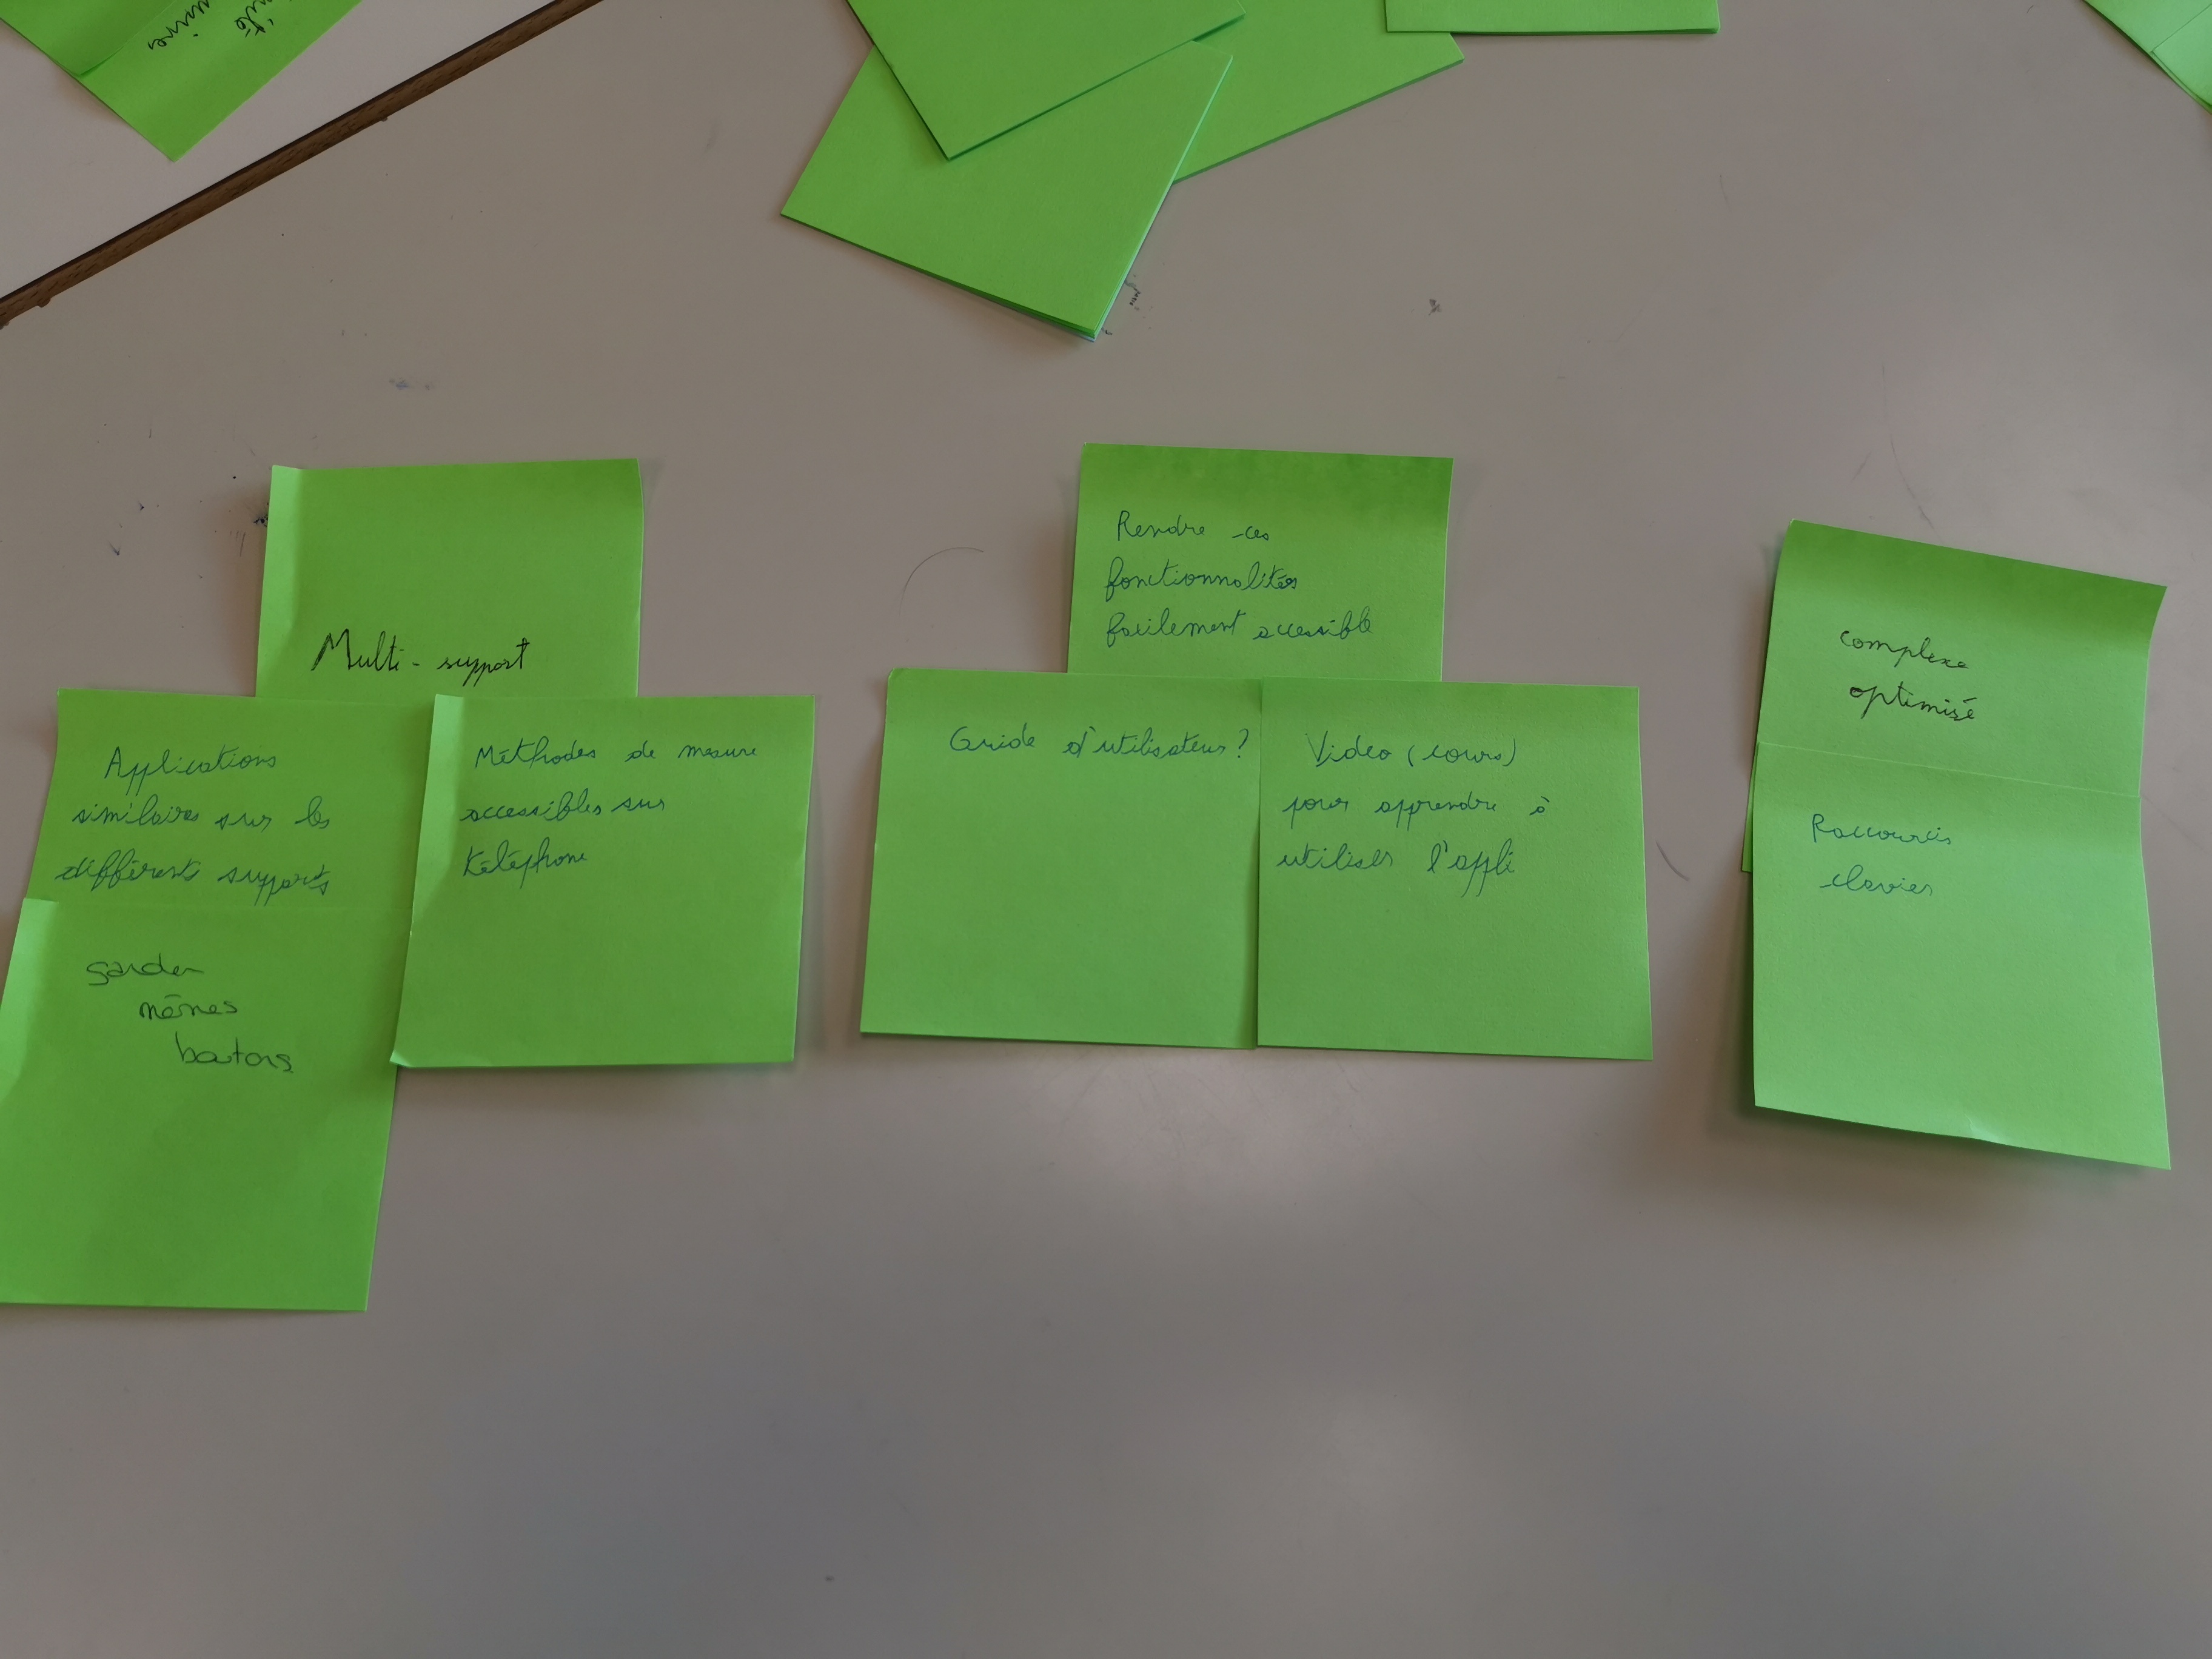 Multi-support
Applications
similaires sur les
différents supports
garder
mêmes
boutons
Méthodes de mesure
accessibles sur
téléphone
Rendre ces
fonctionnalités
facilement accessible
Guide d'utilisateur ?
Video (cours)
pour apprendre à
utiliser l'appli
complexe
optimisé
Raccourcis
clavier